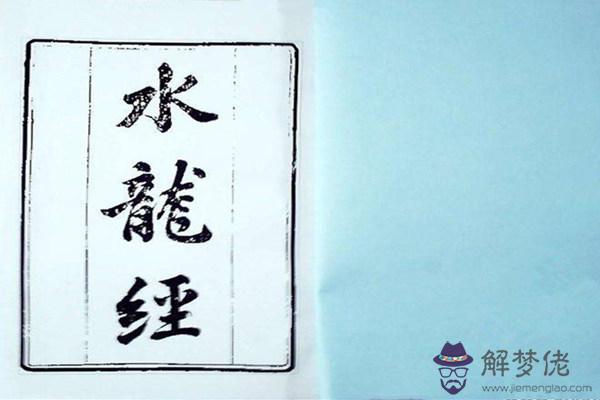 水龍經
解梦佬
www.jiemenglao.com